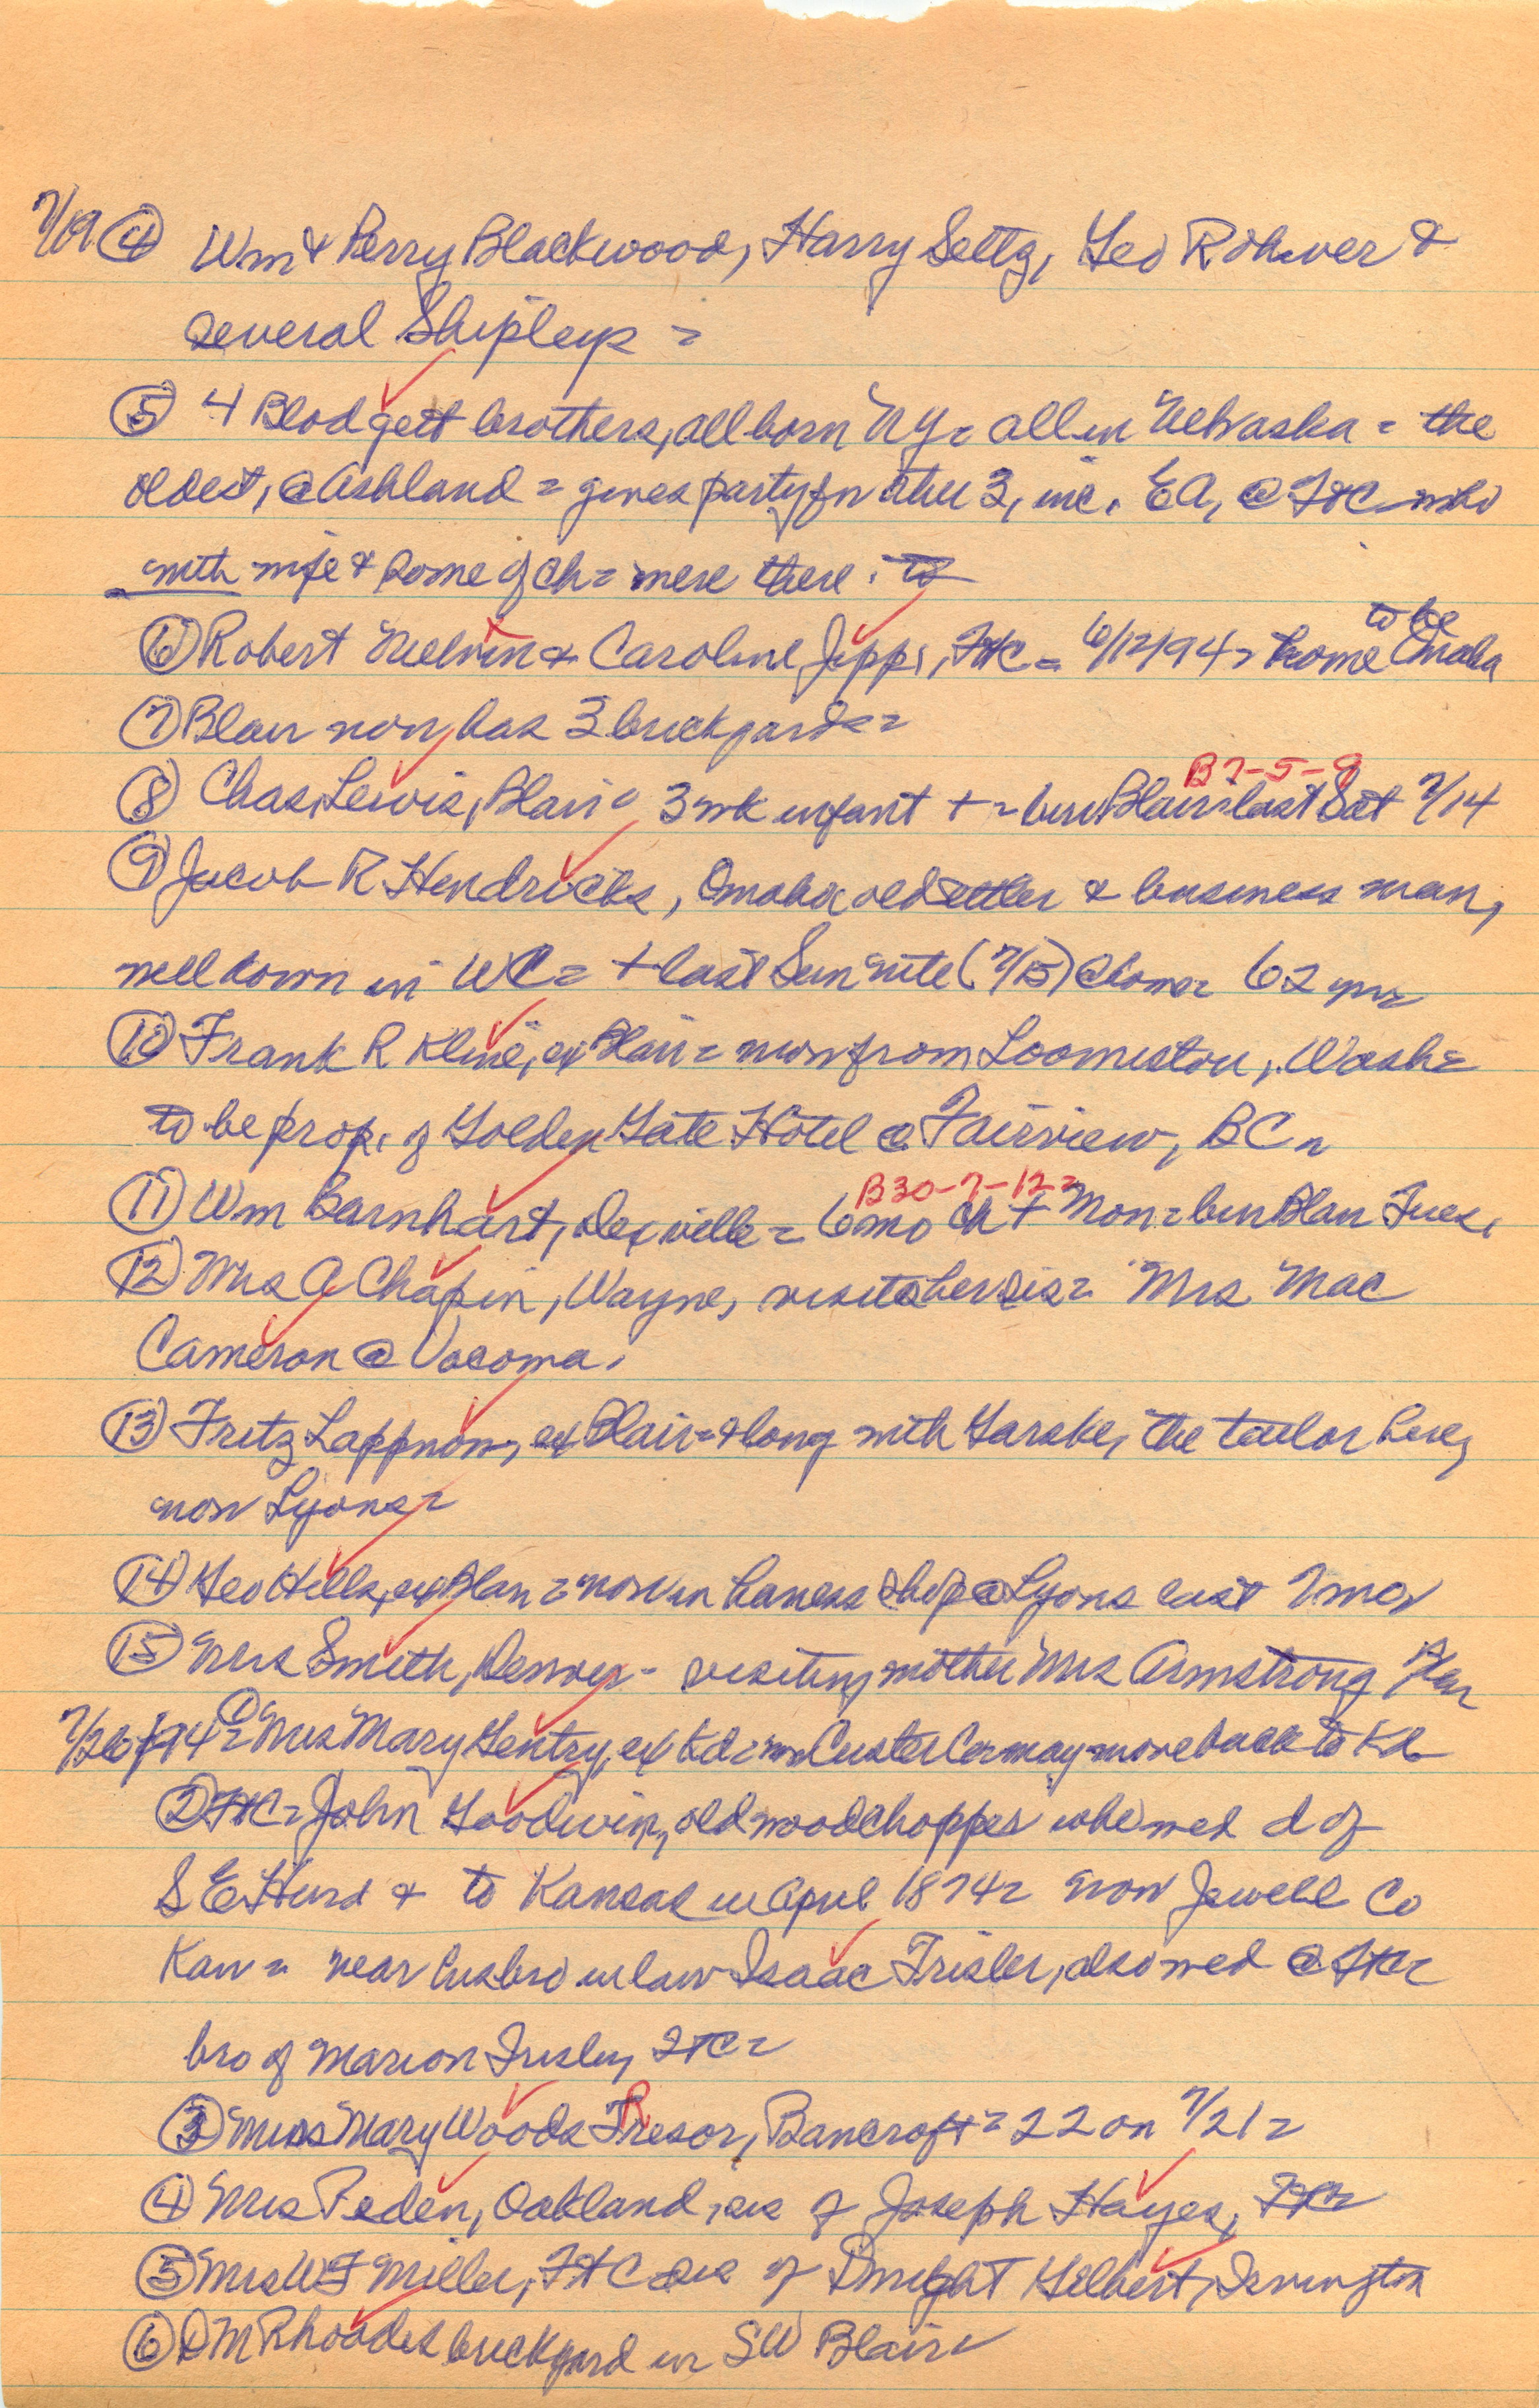 7/19 ④ Wm & Perry Blackwood, Harry Seltz, Geo Rohwer &
several Shipleys =
⑤ 4 Blodgett brothers, all born NY = all in Nebraska = the
oldest, @ Ashland = gives party for other 3, inc. EA, @ FtC who
with wife & some of ch = were there.
⑥ Robert & Caroline Jipp, FtC = 6/12/94 = home Omaha
to be
⑦ Blair now has 3 brickyards =
B 7-5-9
⑧ Chas. Lewis, Blair = 3 wk infant + = bur Blair = last Sat 7/14
⑨ Jacob R Hendricks, Omaha old settler & business man,
well known in WC = + last Sun nite (7/15) @ home = 62 yrs
⑩ Frank R Kline, ex Blair = now from Loomiston, Wash =
to be prop. of Golden Gate Hotel @ Fairview, BC =
B30-7-12 =
⑪ Wm Barnhart, ville = 6 mo ch + Mon = bur Blair Tues.
⑫ Mrs A Chapin, Wayne, visits her sis = Mrs Mac
Cameron @ Vacoma.
⑬ Fritz Lappnow, ex Blair = & long with Garske, the tailor here,
now Lyons =
⑭ Geo Hills, ex Blair = now in harness shop @ Lyons last 2 mos
⑮ Mrs Smith, Denver - visiting mother Mrs Armstrong
7/26/94 = ① Mrs Mary Gentry, ex Kd = now Custer Co = may move back to Kd
② FtC = John Goodwin, old woodchopper who wed d of
S E Hurd & to Kansas in April 1874 = now Jewell Co
Kan = near his bro in law Isaac Frisler, also wed @ FtC =
bro of Marion Frisler, FtC =
③ Miss Mary Woods Tresor, Bancroft = 22 on 7/21 =
R
④ Mrs Peden, Oakland, sis of Joseph Hayes, FtC =
⑤ Mrs WF Miller, FtC sis of Dwight Gilbert, Irvington
⑥ DM Rhoades brickyard in SW Blair =